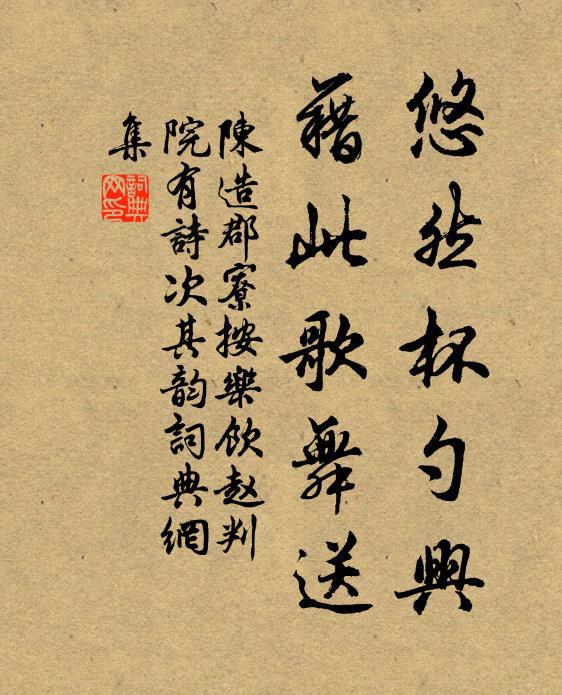 悠然杯勺興
藉此歌舞送
陳造郡寮按樂飲趙判
院有詩次其韵詞典網
集
詞典
网印